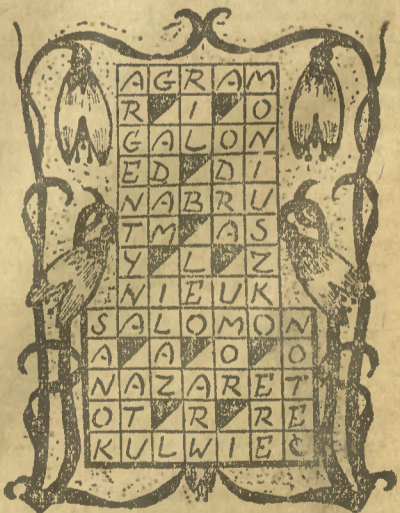 AGRAM
R I O
GALON
ED DI
NABRU
TM AS
Y L Z
NIEUK
SALOMON
A A O O
NAZARET
OT R RE
KULWIEC